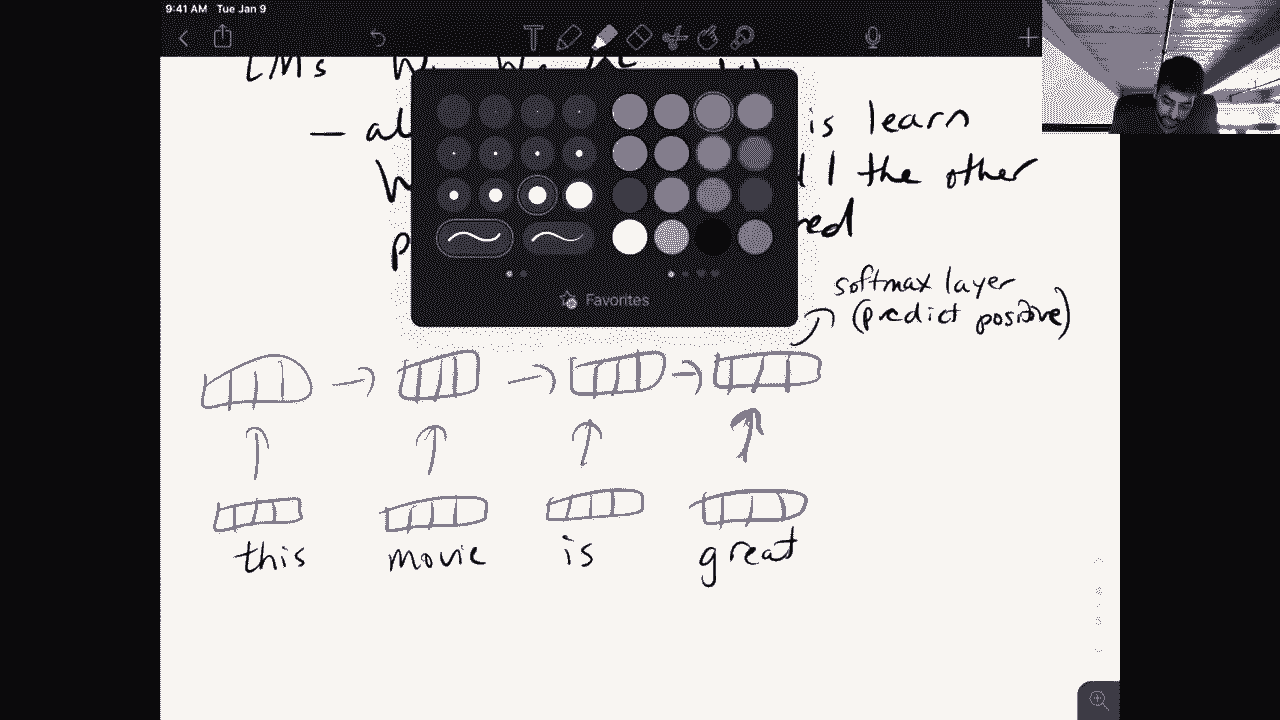 9:41 AM Tue Jan 9
LMs
is learn
the other
Favorites
softmax layer
(predict positive)
this movie is great